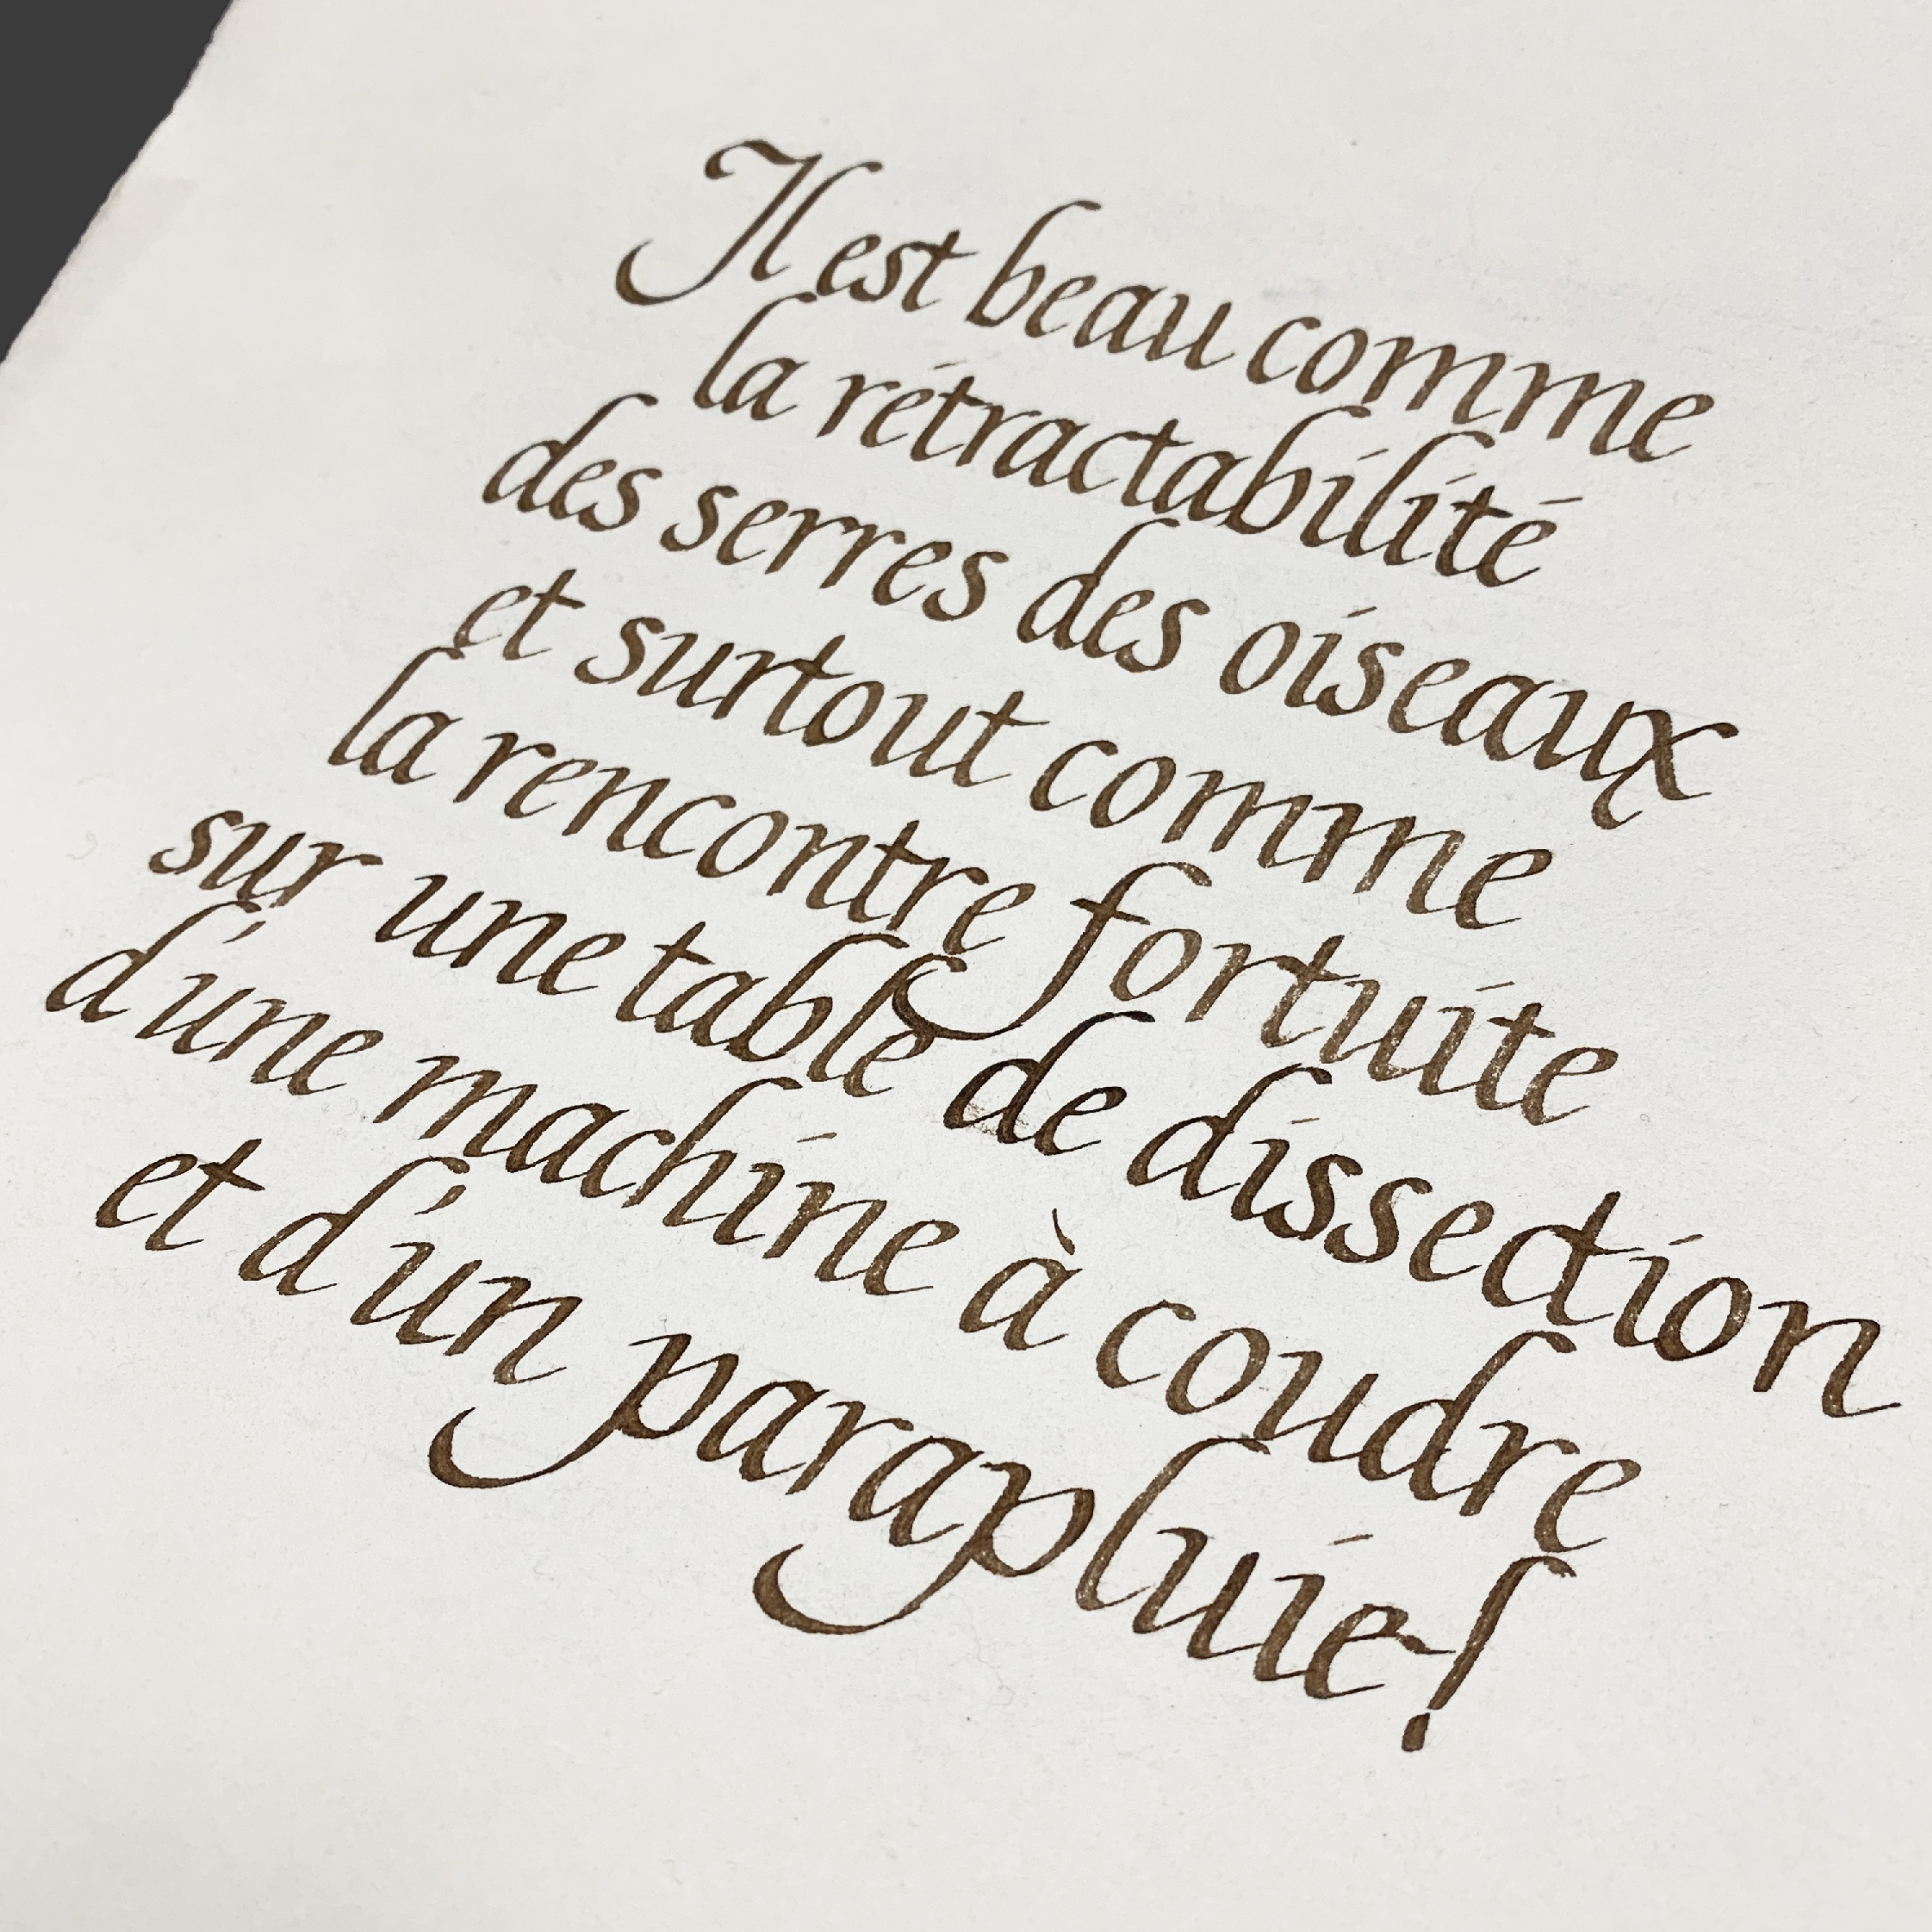 Il est beau comme
la rétractabilité
des serres des oiseaux
et surtout comme
la rencontre fortuite
sur une table de dissection
d'une machine à coudre
et d'un parapluie!